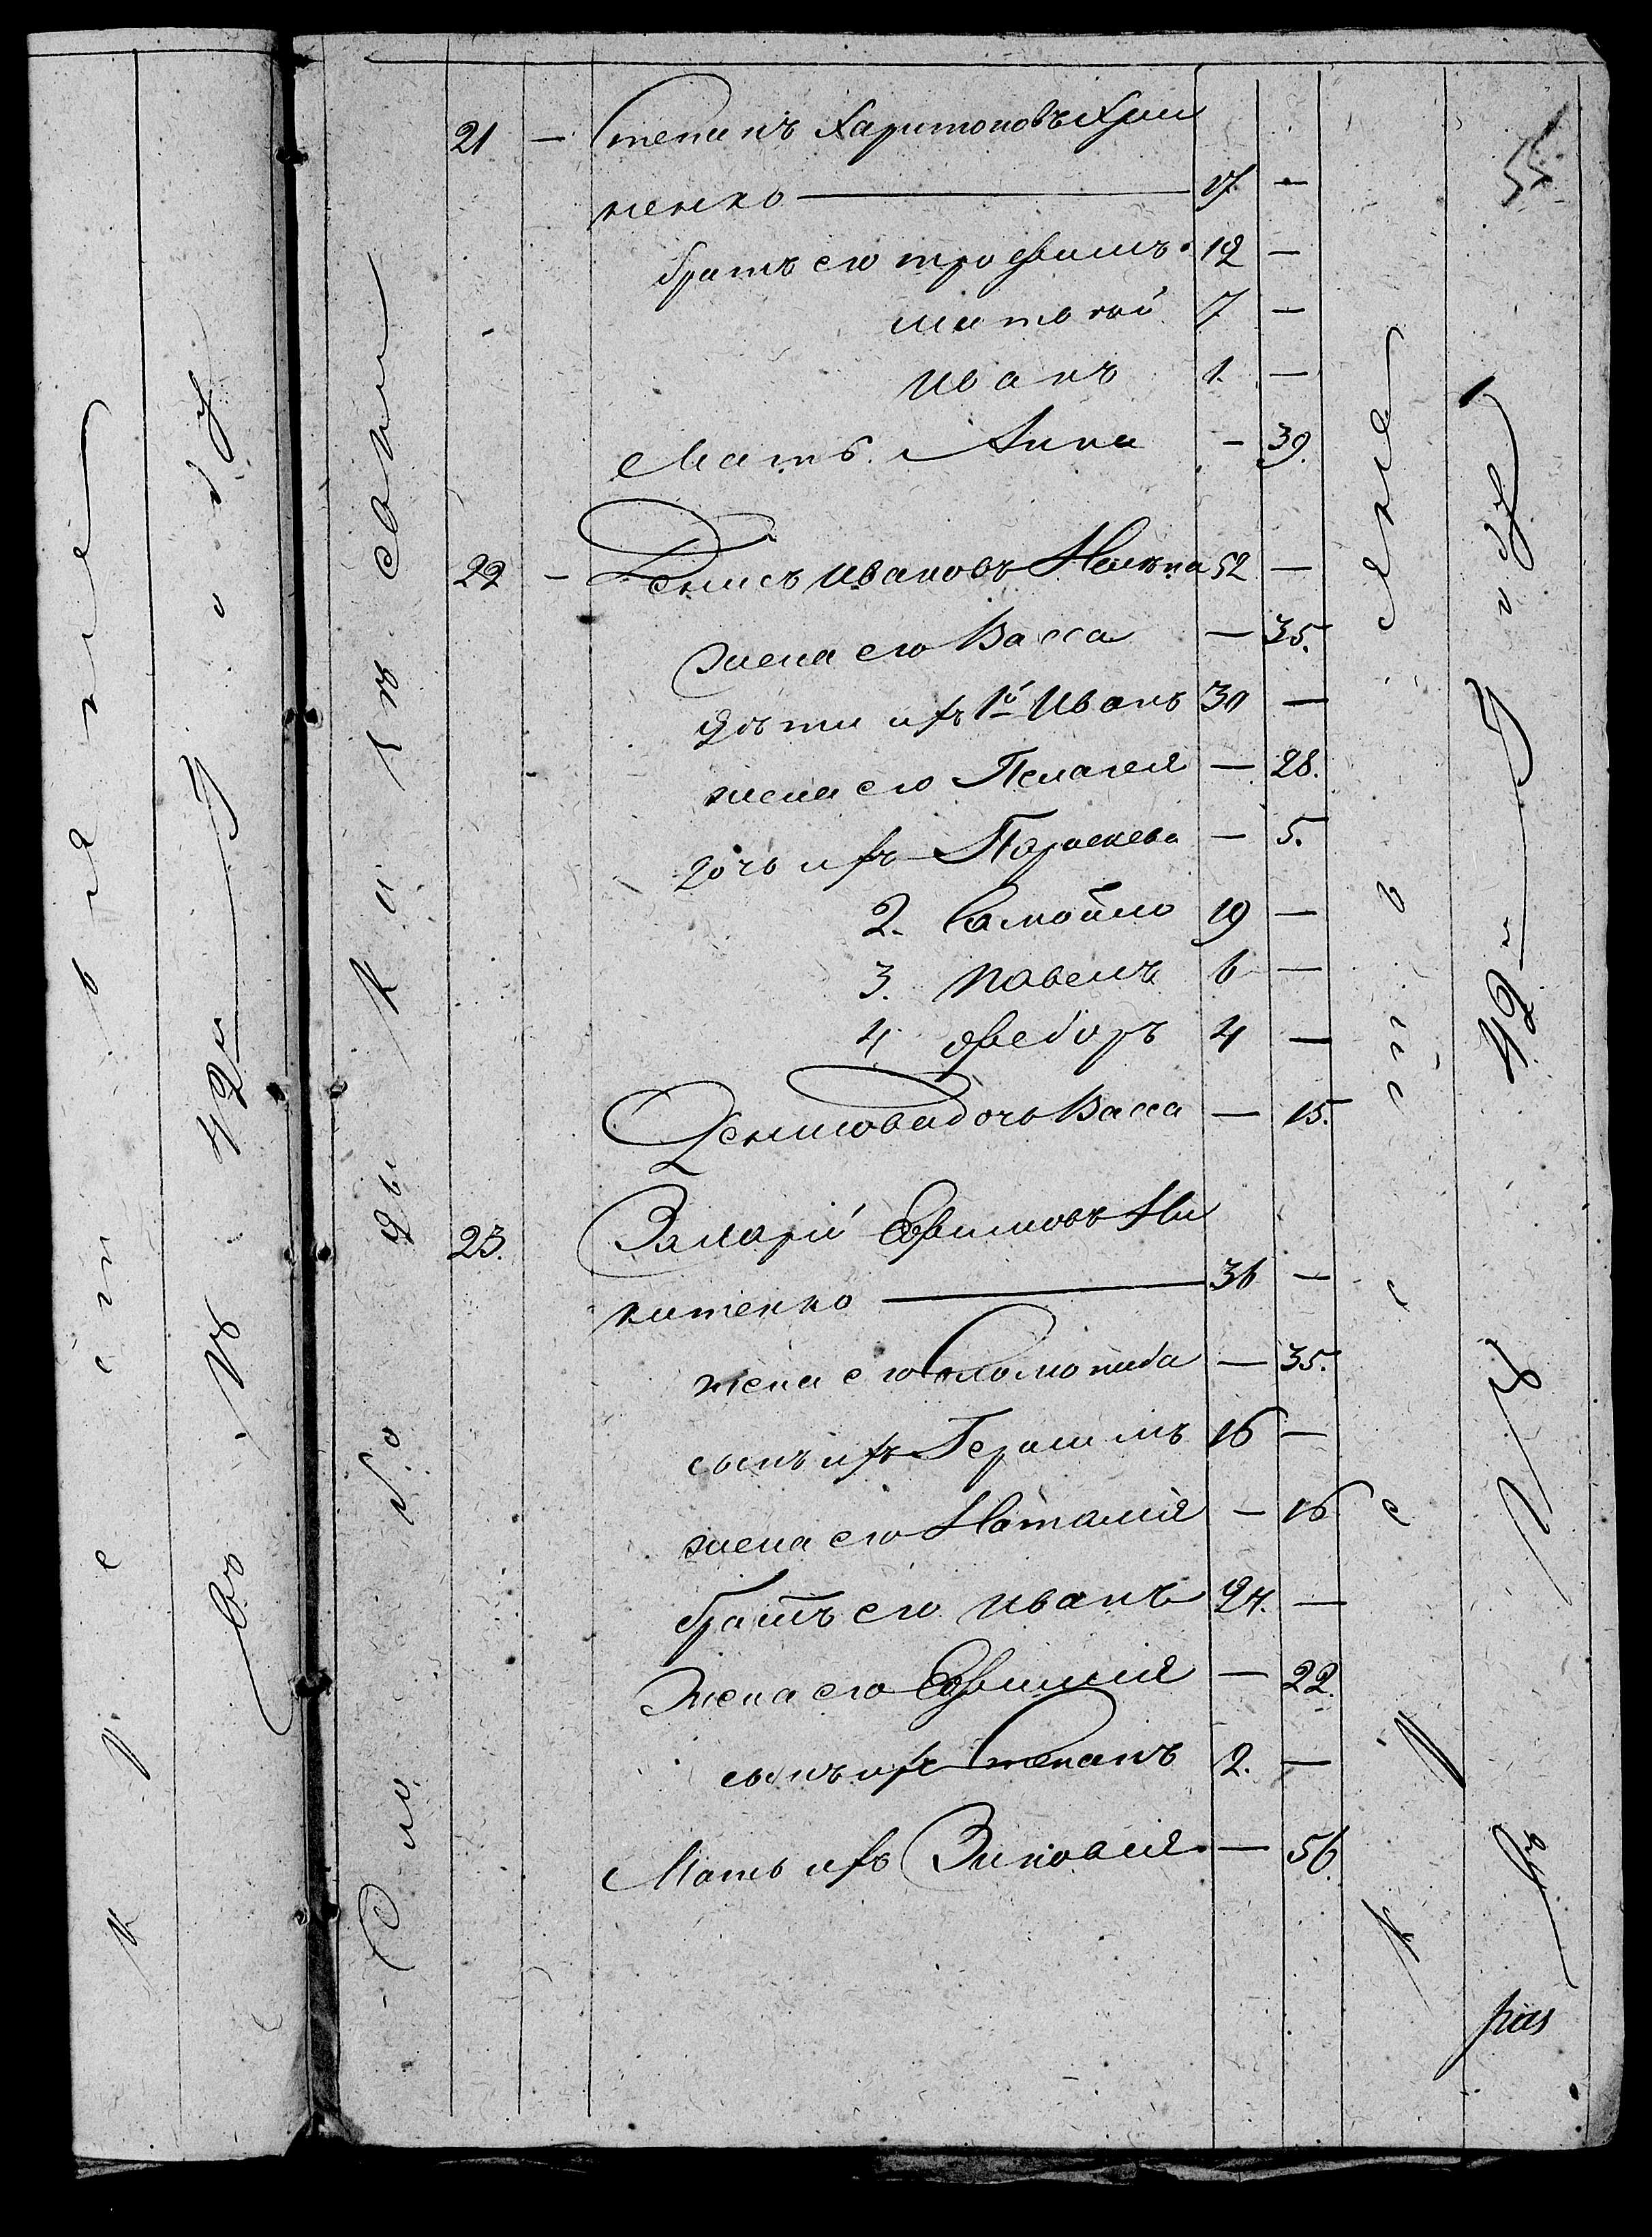 55
21 — Степанъ Харитоновъ Хри
ненко — 17 —
братъ его трофимъ 12 —
матвей 7 —
иванъ 1. —
Мать Анна — 39.
22 — Денисъ ивановъ 52 —
жена его Васса — 35.
дѣти ихъ 1й Иванъ 30 —
жена его Пелагея — 28.
дочь ихъ Параскева — 5.
2. Самойло 19 —
3. павелъ 6 —
4 федоръ 4 —
Денисова дочь Васса — 15.
23. Евфимовъ Ни
китенко — 36 —
жена его Соломонида — 35.
сынъ ихъ Герасимъ 16 —
жена его Наталия — 16
братъ его иванъ 24. —
Жена его Евфимия — 22.
сынъ ихъ Степанъ 2. —
Мать ихъ Зиновия — 56
крестьяне
въ году
крестьяне
году
раз